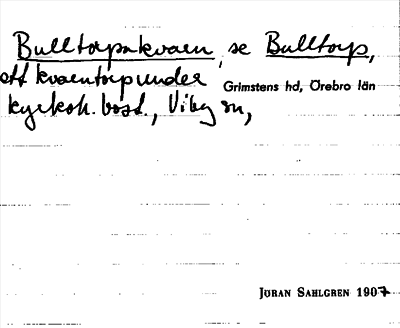 Bulltorpakvarn, se Bulltorp,
ett kvarntorp under Grimstens hd, Örebro län
kyrkoh. bost., Viby sn,
JÖRAN SAHLGREN 1907